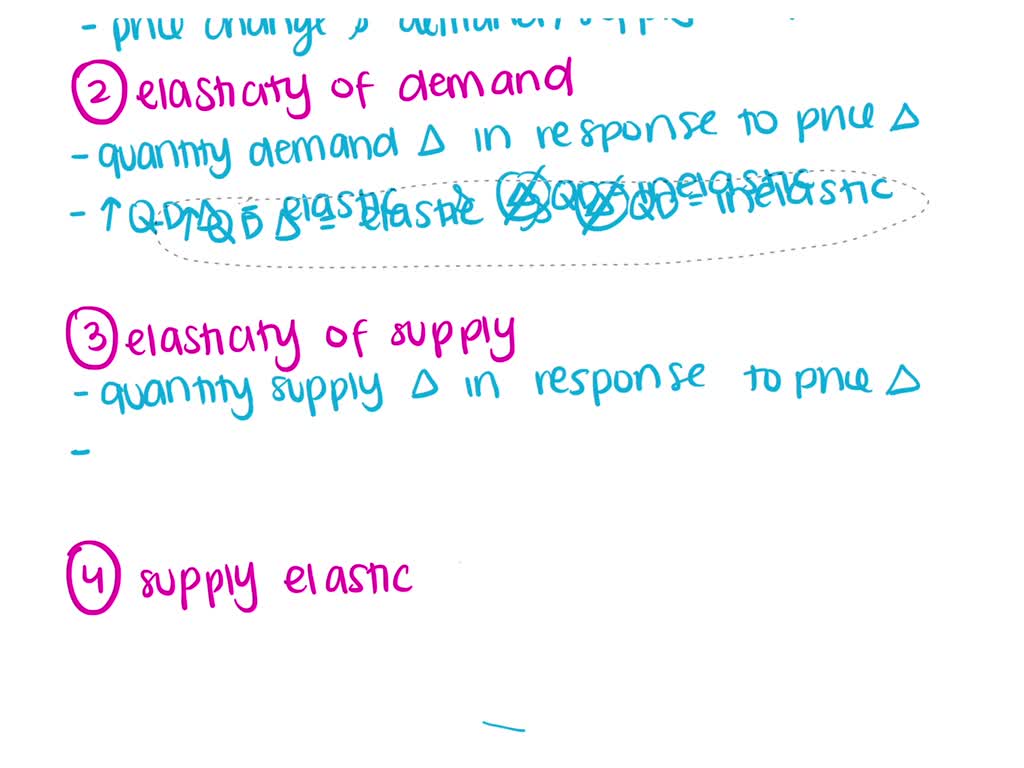 - price change & demand / supply
② elasticity of demand
- quantity demand Δ in response to price Δ
- ↑QD Δ = elastic & QD = inelastic
↑QD Δ = elastic & QD = inelastic
③ elasticity of supply
- quantity supply Δ in response to price Δ
-
④ supply elastic